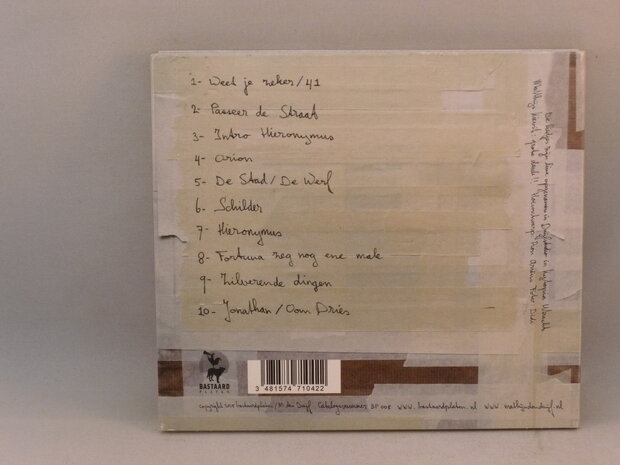 1- Weet je zeker/41
2- Passeer de Straat
3- Intro Hieronymus
4- Orion
5- De Stad/De Werf
6- Schilder
7- Hieronymus
8- Fortuna zeg nog ene male
9- Zilverende dingen
10- Jonathan/Oom Dries
BASTAARD
PLATEN
3 481574 710422
copyright bastaardplaten/M. den Duijf. Catalogusnummer BP 008 www.bastaardplaten.nl www.mathijndenduijf.nl